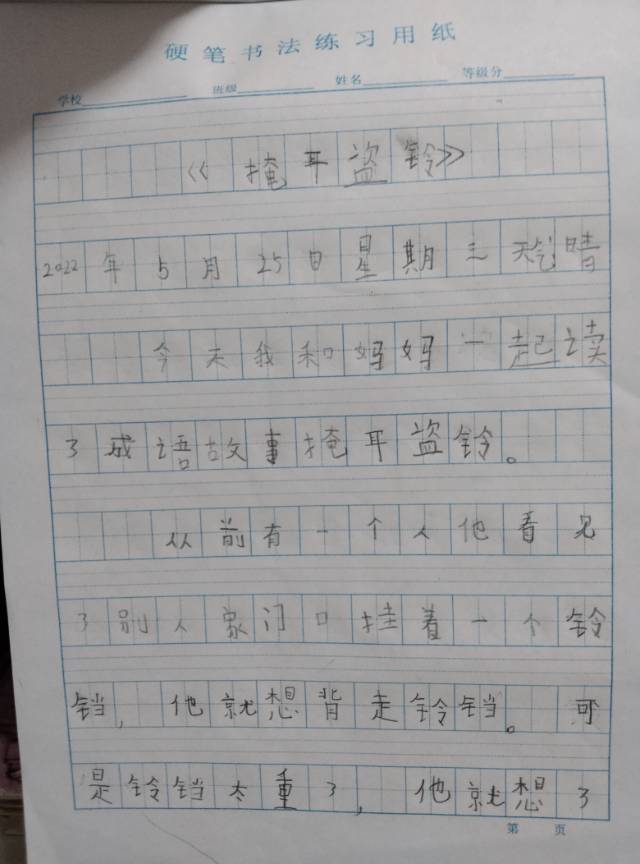 硬笔书法练习用纸
学校 班级 姓名 等级分
《掩耳盗铃》
2022年5月25日星期三天气晴
今天我和妈妈一起读
了成语故事掩耳盗铃。
从前有一个人他看见
了别人家门口挂着一个铃
铛,他就想背走铃铛。可
是铃铛太重了,他就想了
第 页